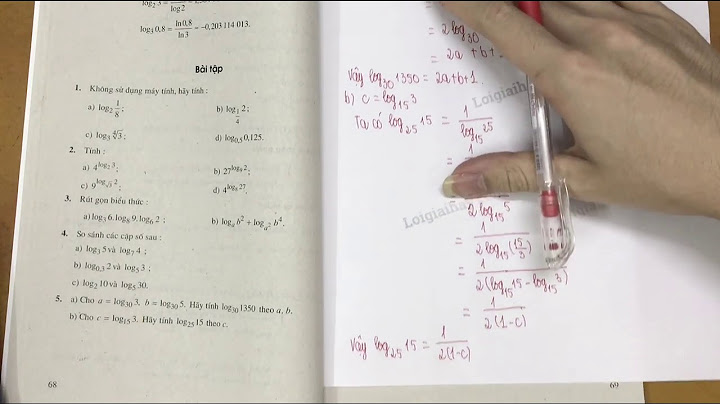 log₂ 3 =
log2
log₃ 0,8 = ln0,8/ln3 ≈ −0,203 114 013.
Bài tập
1. Không sử dụng máy tính, hãy tính :
a) log₂ 1/8 ; b) log_{1/4} 2 ;
c) log₃ ⁴√3 ; d) log₀,₅ 0,125.
2. Tính :
a) 4^{log₂ 3} ; b) 27^{log₉ 2} ;
c) 9^{log_{√3} 2} ; d) 4^{log₈ 27}.
3. Rút gọn biểu thức :
a) log₃ 6 . log₈ 9 . log₆ 2 ; b) logₐ b² + log_{a²} b⁴.
4. So sánh các cặp số sau :
a) log₃ 5 và log₇ 4 ;
b) log₀,₃ 2 và log₅ 3 ;
c) log₂ 10 và log₅ 30.
5. a) Cho a = log₃₀ 3, b = log₃₀ 5. Hãy tính log₃₀ 1350 theo a, b.
b) Cho c = log₁₅ 3. Hãy tính log₂₅ 15 theo c.
68
= 2log₃₀
= 2a + b +
Vậy log₃₀ 1350 = 2a+b+1.
b) c = log₁₅ 3
Ta có log₂₅ 15 = 1/log₁₅ 25
= 1
2log₁₅ 5
= 1/(2log₁₅ (15/3))
= 1/(2(log₁₅ 15 − log₁₅ 3))
= 1/(2(1−c))
Vậy log₂₅ 15 = 1/(2(1−c))
69